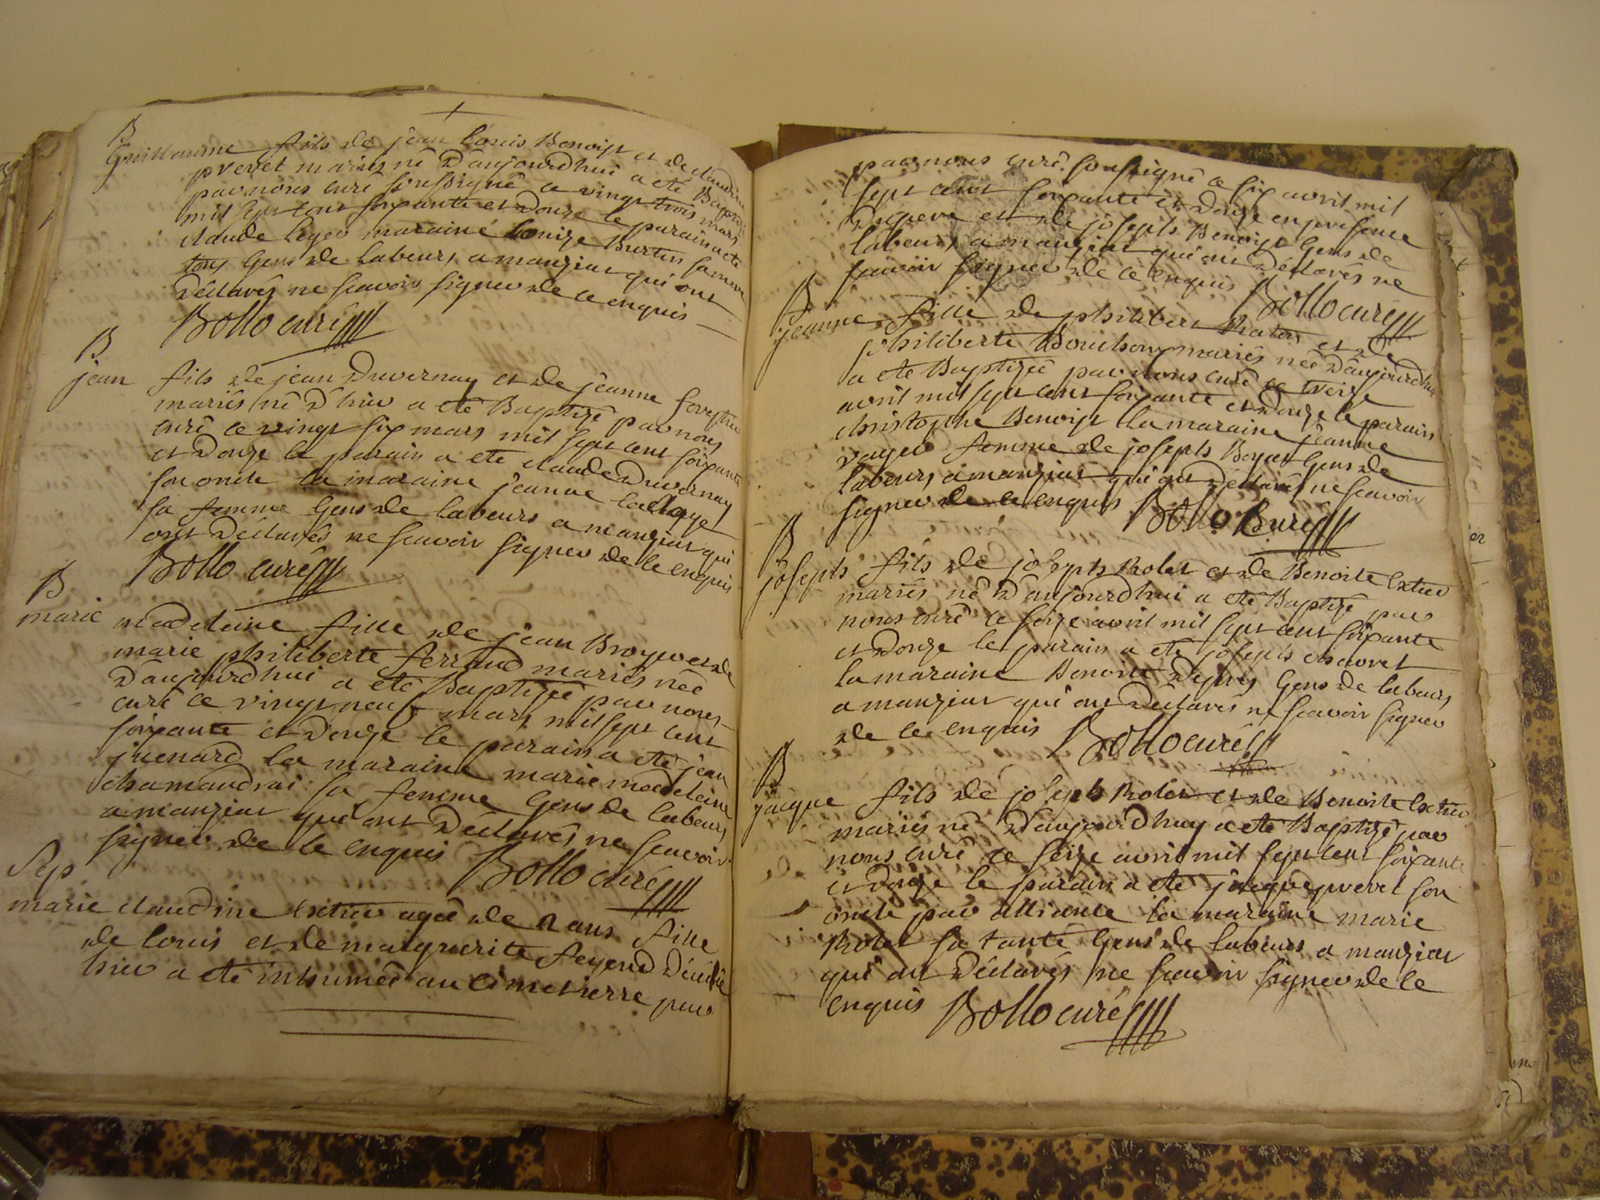 B
Guillaume fils de jean louis Benoist et de claudine
prevet mariés né d'aujourdhui a eté Baptisé
par nous curé soussigné a vingt trois mars
mil sept cent soixante et douze le parain a eté
claude leger maraine louise Burtin sa femme
tous gens de labeurs a manziat qui ont
déclarés ne scavoir signer de ce enquis
Bollo curé
B
jean fils de jean Duvernay et de jeanne forestier
mariés né d'hier a eté Baptisé par nous
curé ce vingt six mars mil sept cent soixante
et douze le parain a eté claude Duvernay
son oncle la maraine jeanne
sa femme gens de labeurs a manziat qui
ont déclarés ne scavoir signer de ce enquis
Bollo curé
B
marie madelaine fille de jean Broyer et de
marie philiberte ferrand mariés née
d'aujourdhui a eté Baptisée par nous
curé ce vingt neuf mars mil sept cent
soixante et douze le parain a eté jean
juenard la maraine marie madelaine
chamandrai sa femme gens de labeurs
a manziat qui ont déclarés ne scavoir
signer de ce enquis Bollo curé
Sep
marie claudine agée de 2 ans fille
de louis et de marguerite feyend décédée
hier a eté inhumée au cimetierre par
par nous curé soussigné a six avril mil
sept cent soixante et douze en presence
et de joseph Benoist gens de
labeurs a manziat qui ont déclarés ne
scavoir signer de ce enquis Bollo curé
B
jeanne fille de philibert et de
philiberte Bouchoux mariés née d'aujourdhui
a eté Baptisée par nous curé ce treize
avril mil sept cent soixante et douze le parain
christophe Benoist la maraine jeanne
femme de joseph Boyat gens de
labeurs a manziat qui ont déclarés ne scavoir
signer de ce enquis Bollo curé
B
joseph fils de joseph Rolet et de Benoite
mariés né d'aujourdhui a eté Baptisé par
nous curé ce seize avril mil sept cent soixante
et douze le parain a eté joseph chavret
la maraine Benoite Dépres gens de labeurs
a manziat qui ont déclarés ne scavoir signer
de ce enquis Bollo curé
B
jaque fils de joseph Rolet et de Benoite
mariés né d'aujourdhuy a eté Baptisé par
nous curé ce seize avril mil sept cent soixante
et douze le parain a eté jaque prevet son
oncle par alliance la maraine marie
Rolet sa tante gens de labeurs a manziat
qui ont déclarés ne scavoir signer de ce
enquis Bollo curé